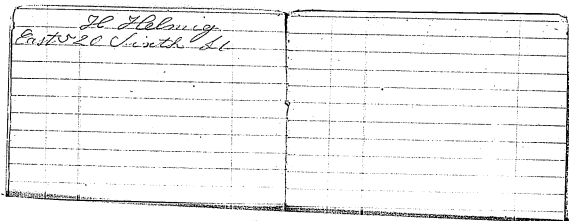 H Helmig
East 520 Sixth St